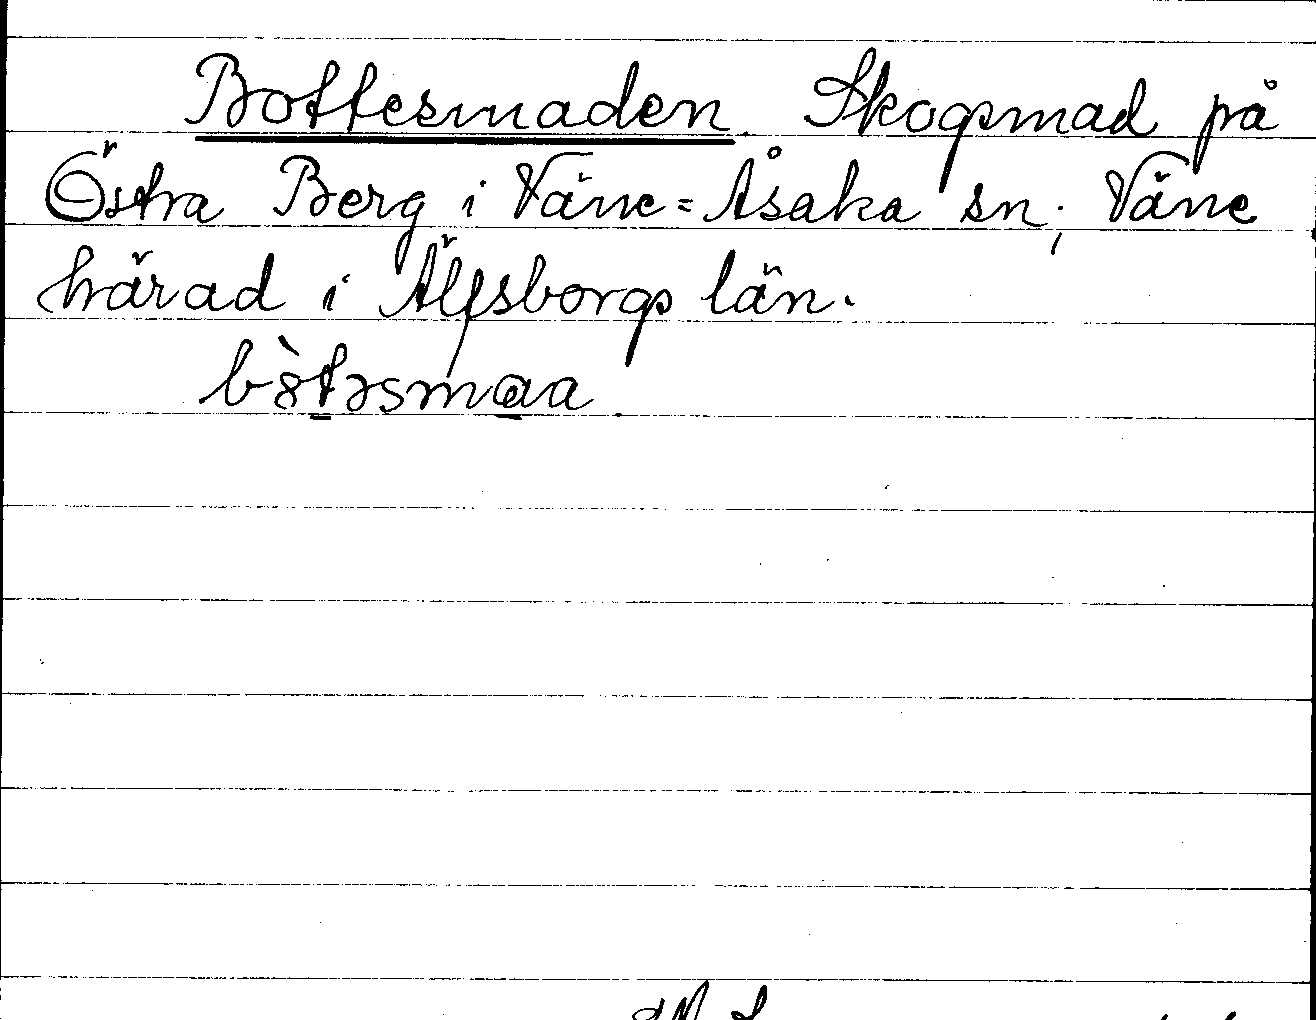 Bottesmaden. Skogsmad på
Östra Berg i Väne=Åsaka sn; Väne
härad i Älfsborgs län.